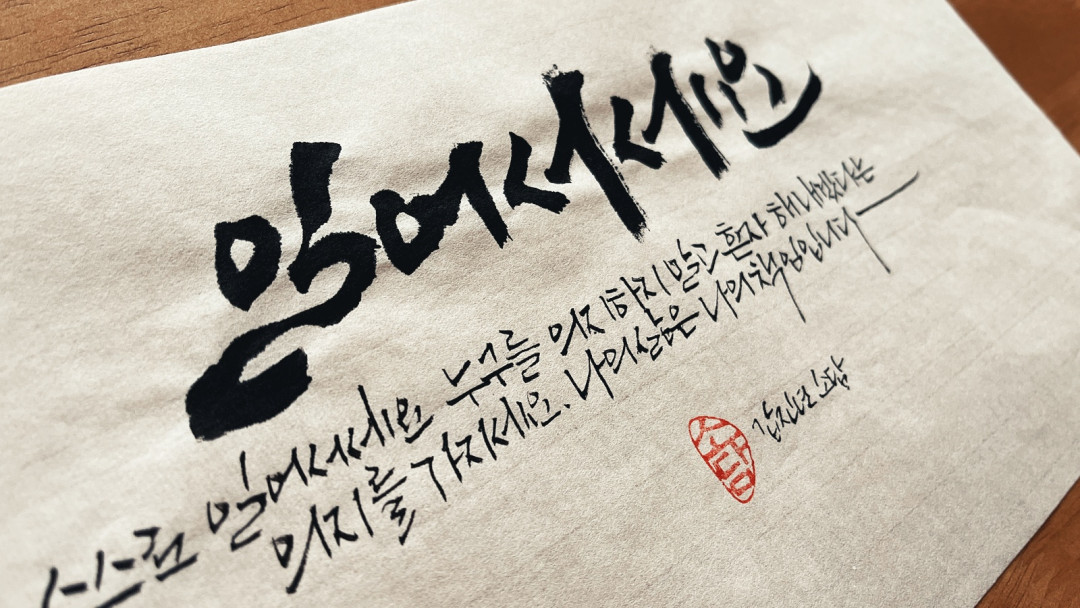 일어서세요
스스로 일어서세요 누구를 의지하지 말고 혼자 해내겠다는
의지를 가지세요. 나의 삶은 나의 책임입니다
갑진년 소담
소담